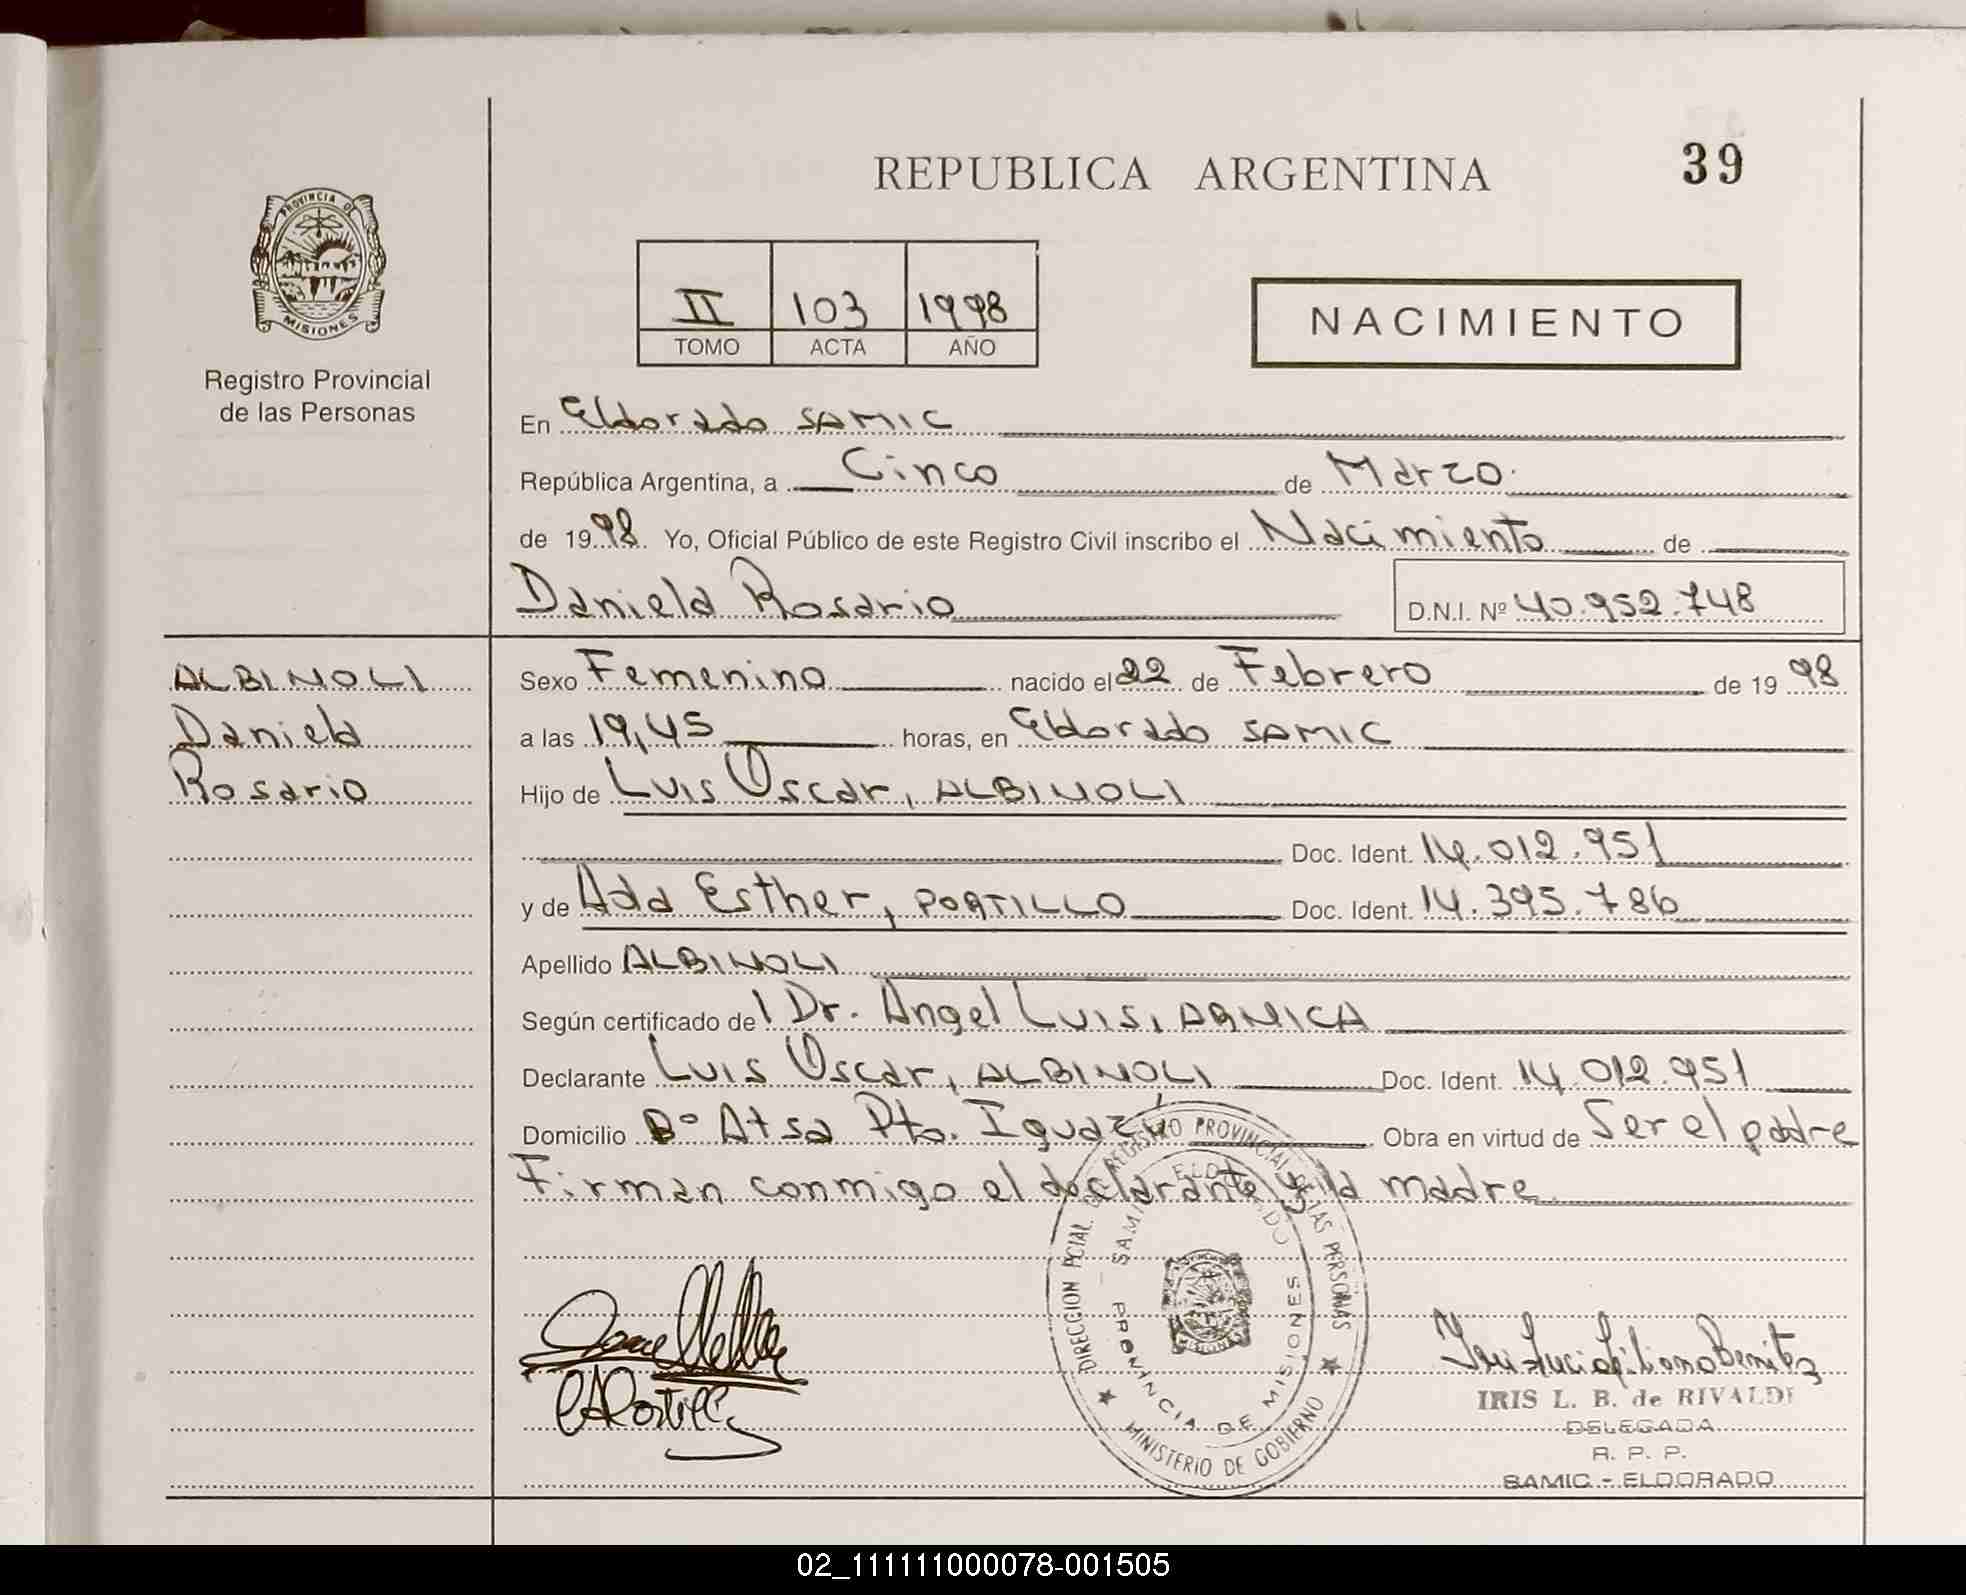 REPUBLICA ARGENTINA
39
PROVINCIA DE
MISIONES
Registro Provincial
de las Personas
II 103 1998
TOMO ACTA AÑO
NACIMIENTO
En Eldorado SAMIC
República Argentina, a Cinco de Marzo
de 1998 Yo, Oficial Público de este Registro Civil inscribo el Nacimiento de
Daniela Rosario D.N.I. Nº 40.952.748
ALBINOLI
Daniela
Rosario
Sexo Femenino nacido el 22 de Febrero de 1998
a las 19,45 horas, en Eldorado SAMIC
Hijo de Luis Oscar, ALBINOLI
Doc. Ident. 14.012.951
y de Ada Esther, PORTILLO Doc. Ident. 14.395.786
Apellido ALBINOLI
Según certificado del Dr. Angel Luis, ARNICA
Declarante Luis Oscar, ALBINOLI Doc. Ident. 14.012.951
Domicilio Bº Atsa Pto. Iguazú Obra en virtud de Ser el padre
Firman conmigo el declarante y la madre
DIRECCION PCIAL. DE REGISTRO PROVINCIAL DE LAS PERSONAS
SAMIC ELDORADO
PROVINCIA DE MISIONES
MINISTERIO DE GOBIERNO
IRIS L. B. de RIVALDI
DELEGADA
R. P. P.
SAMIC - ELDORADO
02_111111000078-001505